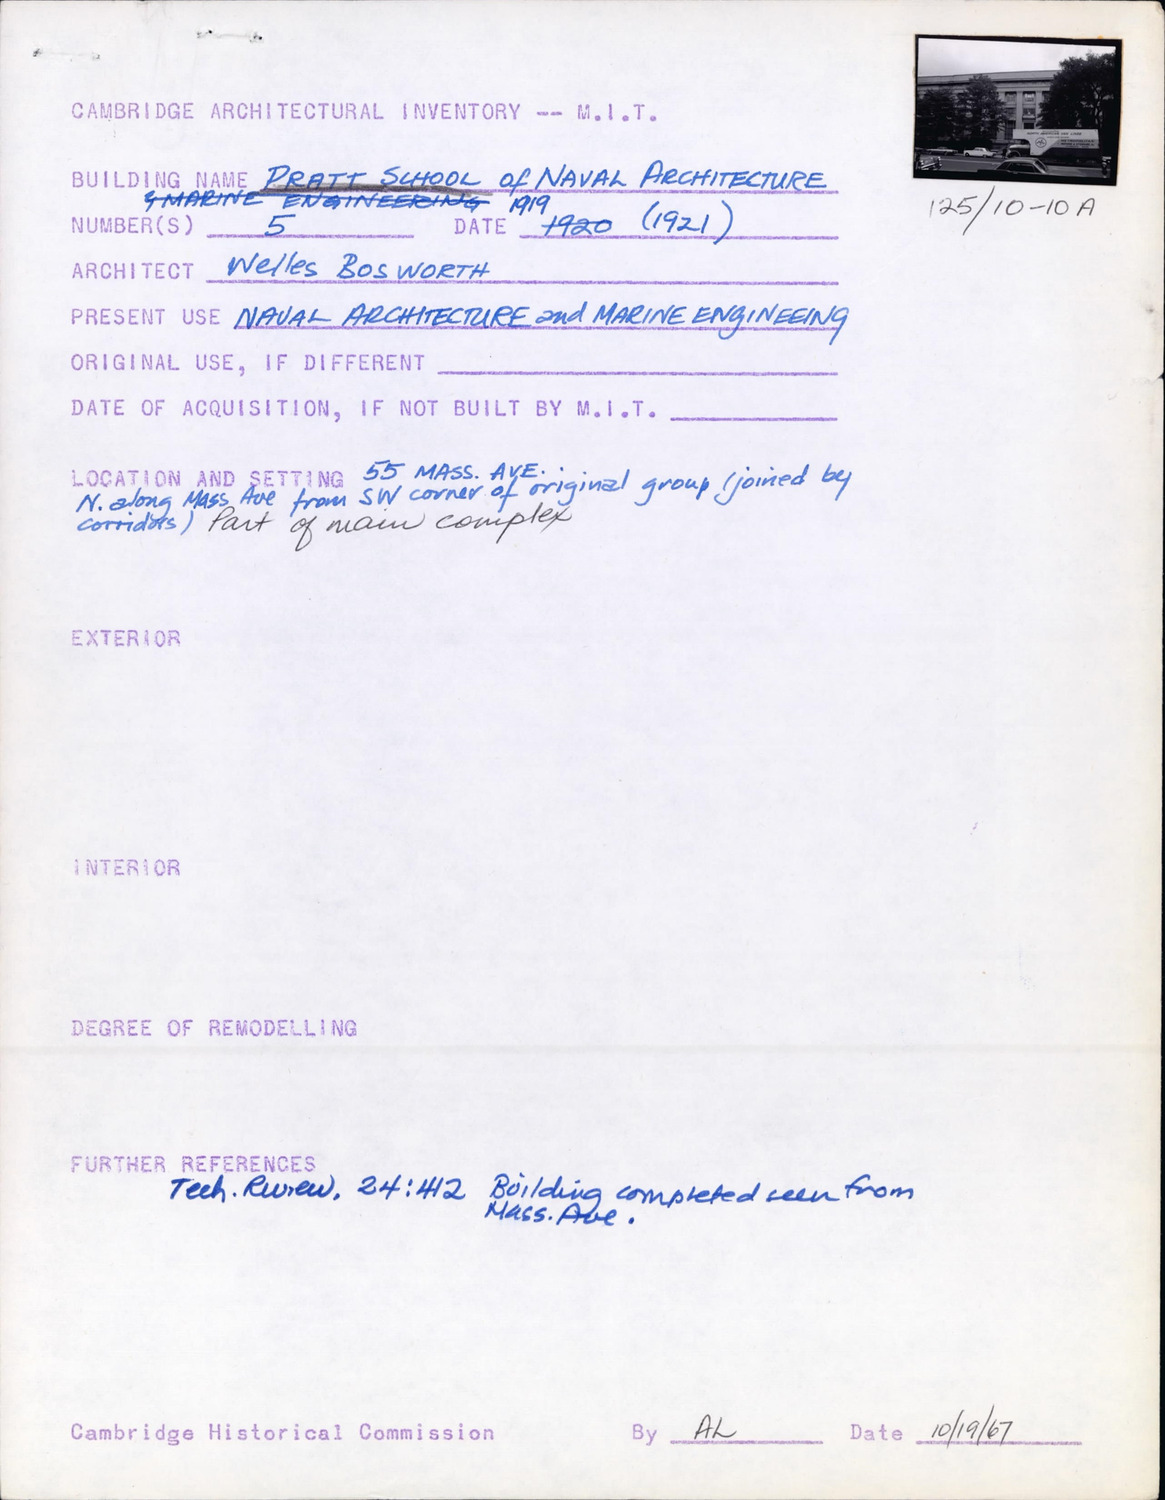 CAMBRIDGE ARCHITECTURAL INVENTORY -- M.I.T.
BUILDING NAME PRATT SCHOOL of NAVAL ARCHITECTURE
& MARINE ENGINEERING 1919
NUMBER(S) 5 DATE 1920 (1921)
125/10-10A
ARCHITECT Welles BOSWORTH
PRESENT USE NAVAL ARCHITECTURE and MARINE ENGINEEING
ORIGINAL USE, IF DIFFERENT
DATE OF ACQUISITION, IF NOT BUILT BY M.I.T.
LOCATION AND SETTING 55 MASS. AVE.
N. along Mass Ave from SW corner of original group (joined by
corridors) Part of main complex
EXTERIOR
INTERIOR
DEGREE OF REMODELLING
FURTHER REFERENCES
Tech. Review, 24:412 Building completed seen from
Mass. Ave.
Cambridge Historical Commission By AL Date 10/19/67